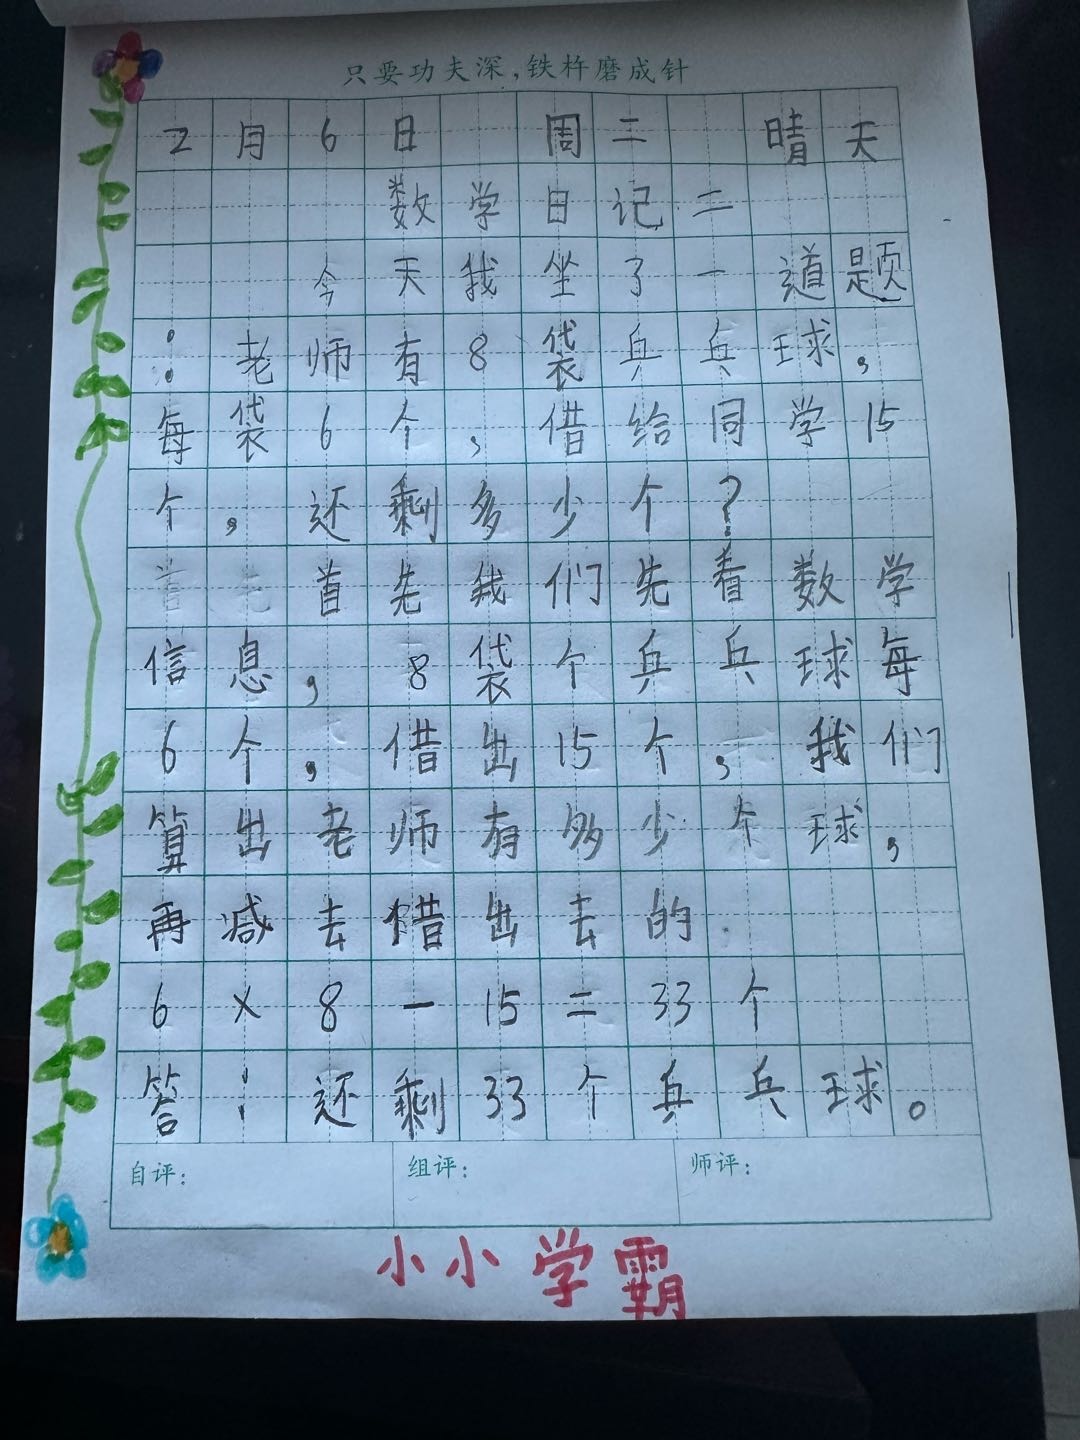 只要功夫深,铁杵磨成针
2月6日 周二 晴天
数学日记二
今天我坐了一道题
:老师有8袋乒乓球,
每袋6个,借给同学15
个,还剩多少个?
首先我们先看数学
信息,8袋个乒乓球每
6个,借出15个,我们
算出老师有多少个球,
再减去借出去的
6×8-15=33个
答:还剩33个乒乓球。
自评: 组评: 师评:
小小学霸